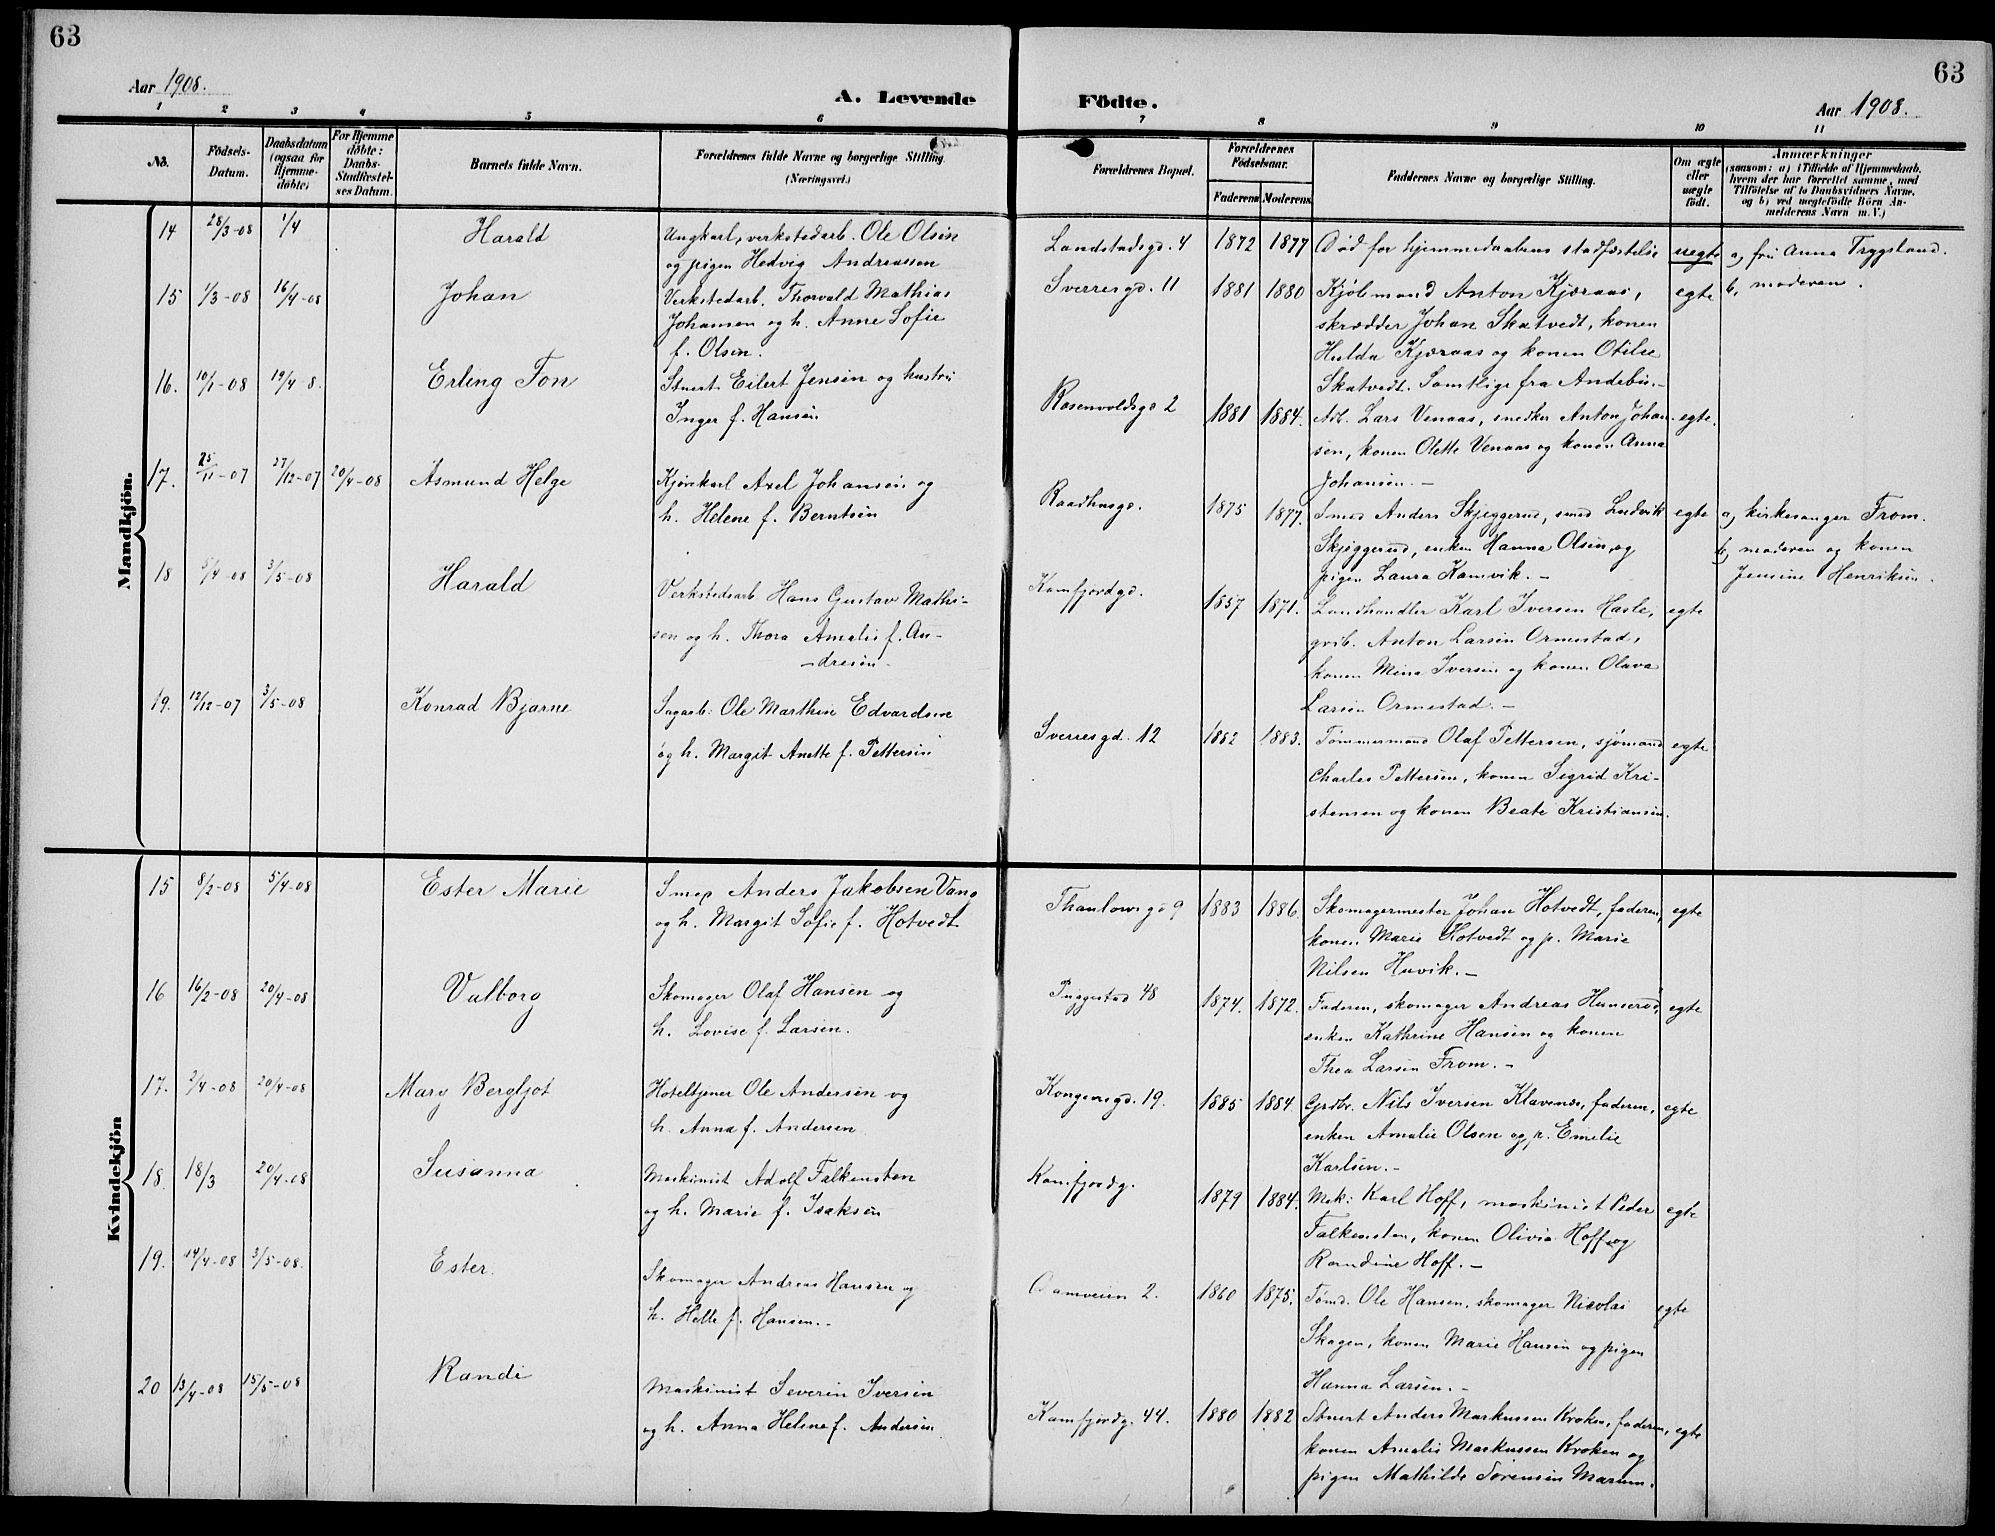 63
Aar 1908.
A. Levende
1 2 3 4 5 6
No.
Födsels-Datum.
Daabsdatum (ogsaa for Hjemme-döbte)
For Hjemme döbte: Daabs-Stadfæstel-ses Datum.
Barnets fulde Navn.
Forældrenes fulde Navne og borgerlige Stilling.
(Næringsvei.)
Mandkjön.
14 28/3-08 1/4 Harald Ungkarl, verkstedarb. Ole Olsen
og pigen Hedvig Andreassen
15 1/3-08 16/4-08 Johan Verkstedarb. Thorvald Mathias
Johansen og h. Anne Sofie
f. Olsen.
16. 10/1-08 19/4 8. Erling Ton Stuert Eilert Jensen og hustru
Inger f. Hansen
17. 25/11-07 27/12-07 20/4-08 Asmund Helge Kjørekarl Axel Johansen og
h. Helene f. Berntsen
18 5/4-08 3/5-08 Harald Verkstedsarb Hans Gustav Mathi-
sen og h. Thora Amalie f. An-
-dresen-
19. 12/12-07 3/5-08 Konrad Bjarne Sagarb: Ole Marthin Edvardsen
og h. Margit Anette f. Pettersen
Kvindekjön
15 8/2-08 5/4-08 Ester Marie Smed Anders Jakobsen Vang
og h. Margit Sofie f. Hotvedt
16 16/2-08 20/4-08 Valborg Skomager Olaf Hansen og
h. Lovise f. Larsen.
17. 2/4-08 20/4-08 Mary Bergljot Hoteltjener Ole Andersen og
h. Anna f. Andersen
18. 18/3 20/4-08 Susanna Maskinist Adolf Falkensten
og h. Marie f. Isaksen
19. 14/4-08 3/5-08. Ester. Skomager Andreas Hansen og
h. Helle f. Hansen.-
20 13/4-08 15/5-08 Randi Maskinist Severin Iversen
og h. Anna Helene f. Andersen
63
Födte.
Aar 1908.
7 8 9 10 11
Forældrenes Bopæl.
Forældrenes Födselsaar.
Faderens Moderens
Faddernes Navne og borgerlige Stilling.
Om ægte eller uægte födt.
Anmærkninger
(saasom: a) i Tilfælde af Hjemmedaab,
hvem der har forrettet samme, med
Tilföielse af to Daabsvidners Navne,
og b) ved uægtefödte Börn An-
melderens Navn m. V.)
Landstadsgd. 4 1872 1877 Død før hjemmedaabens stadfæstelse uegte a, fru Anna Trygsland.
b, moderen.
Sverresgd. 11 1881 1880 Kjøbmand Anton Kjæraas, egte
skrædder Johan Skatvedt, konen
Hulda Kjæraas og konen Otilie
Skatvedt. Samtlige fra Andebu.-
Rosenvoldsgd 2 1881 1884. Arb. Lars Venaas, snedker Anton Johan- egte.
sen, konen Olette Venaas og konen Anna
Johansen.-
Raadhusgd. 1875 1877. Smed Anders Skjeggerud, smed Ludvik egte a, kirkesanger From.
Skjeggerud, enken Hanna Olsen, og b, moderen og konen
pigen Laura Kamvik.- Jensine Henriksen.
Kamfjordgd. 1857 1871. Landhandler Karl Iversen Hasle, egte
grdb. Anton Larsen Ormestad,
konen Mina Iversen og konen Olava
Larsen Ormestad.-
Sverresgd. 12 1882 1883. Tømmermand Olaf Pettersen, sjømand egte
Charles Pettersen, konen Sigrid Kri-
stensen og konen Beate Kristiansen.
Thaulowsgd 9 1883 1886. Skomagermester Johan Hotvedt, faderen, egte
konen Marie Hotvedt og p. Marie
Nilsen Huvik.-
Puggestad 48 1874. 1872. Faderen, skomager Andreas Hunserød, egte
enken Kathrine Hansen og konen
Thea Larsen From.-
Kongensgd. 19. 1885 1884 Grdbr. Nils Iversen Klavenæs, faderen, egte
enken Amalie Olsen og p. Emelie
Karlsen.-
Kamfjordg. 1879 1884. Mek: Karl Hoff, maskinist Peder egte
Falkensten, konen Olivia Hoff og
Randine Hoff.-
Damveien 2. 1860 1875. Tømd. Ole Hansen, skomager Nicolai egte
Skagen, konen Marie Hansen og pigen
Hanna Larsen.-
Kamfjordg. 44. 1880 1882 Stuert Anders Markussen Kroken, faderen, egte
konen Amalie Markussen Kroken og
pigen Mathilde Sørensen Marum.